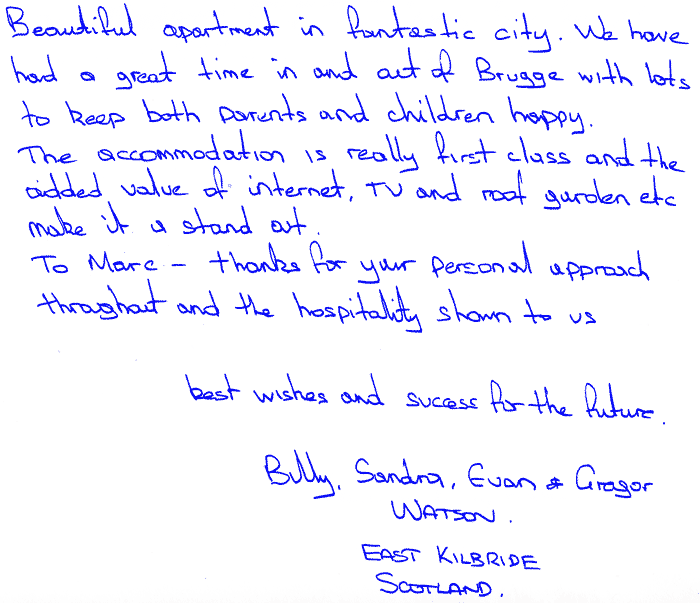 Beautiful apartment in fantastic city. We have
had a great time in and out of Brugge with lots
to keep both parents and children happy.
The accommodation is really first class and the
added value of internet, TV and roof garden etc
make it a stand out.
To Marc - thanks for your personal approach
throughout and the hospitality shown to us
best wishes and success for the future.
Billy, Sandra, Euan & Gregor
WATSON.
EAST KILBRIDE
SCOTLAND.